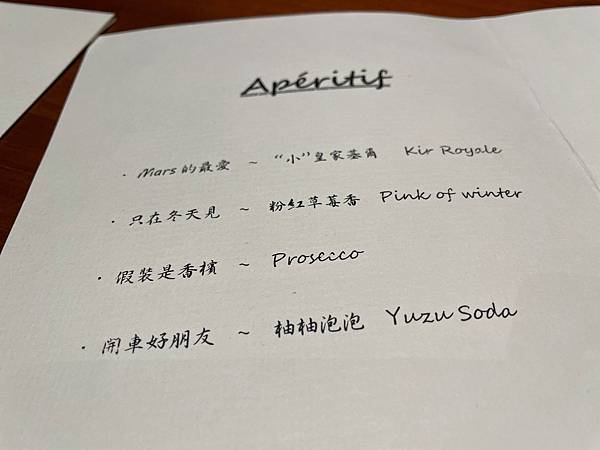 Apéritif
· Mars的最愛 ~ “小”皇家基爾 Kir Royale
· 只在冬天見 ~ 粉紅草莓香 Pink of winter
· 假裝是香檳 ~ Prosecco
· 開車好朋友 ~ 柚柚泡泡 Yuzu Soda